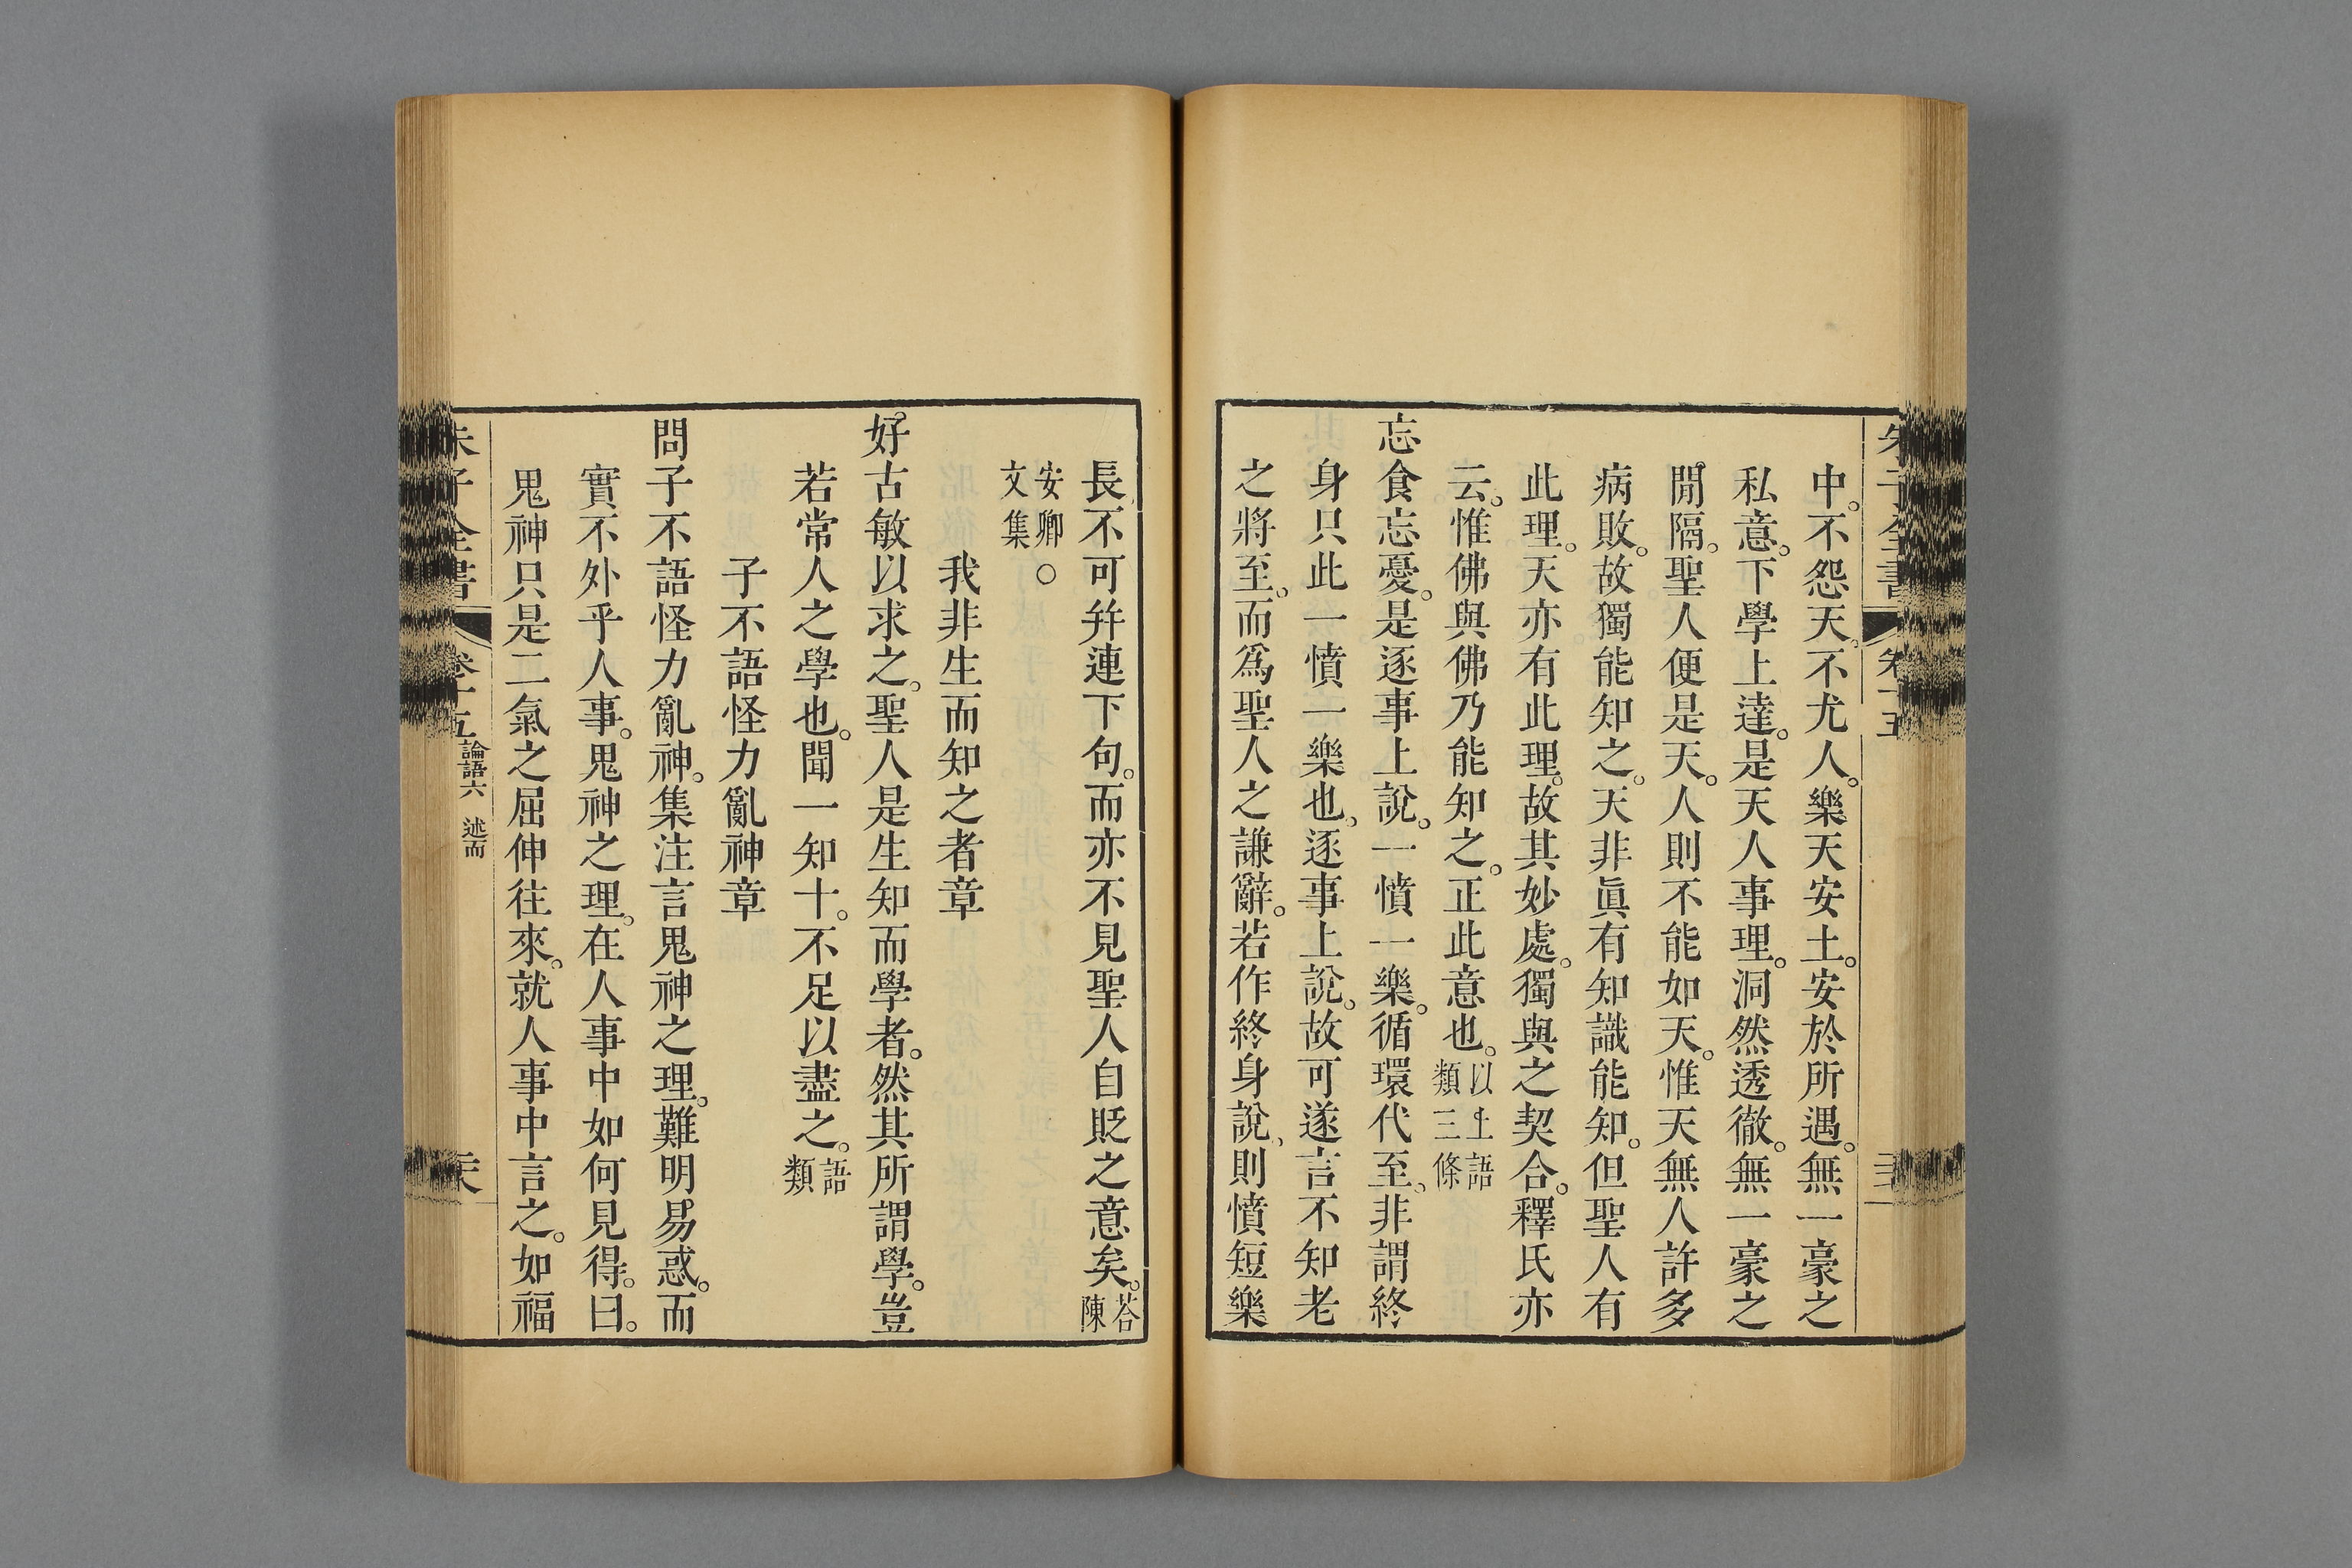 中。不怨天。不尤人。樂天安土。安於所遇。無一豪之
私意。下學上達。是天人事理。洞然透徹。無一豪之
閒隔。聖人便是天。人則不能如天。惟天無人許多
病敗。故獨能知之。天非眞有知識能知。但聖人有
此理。天亦有此理。故其妙處。獨與之契合。釋氏亦
云。惟佛與佛乃能知之。正此意也。以上語類三條
忘食忘憂。是逐事上說。一憤一樂。循環代至。非謂終
身只此一憤一樂也。逐事上說。故可遂言不知老
之將至。而爲聖人之謙辭。若作終身說、則憤短樂
長不可幷連下句。而亦不見聖人自貶之意矣。荅陳
安卿○文集
我非生而知之者章
好古敏以求之。聖人是生知而學者。然其所謂學。豈
若常人之學也。聞一知十。不足以盡之。語類
子不語怪力亂神章
問子不語怪力亂神。集注言鬼神之理。難明易惑。而
實不外乎人事。鬼神之理。在人事中如何見得。曰。
鬼神只是二氣之屈伸往來。就人事中言之。如福
朱子全書 卷十五 論語六 述而